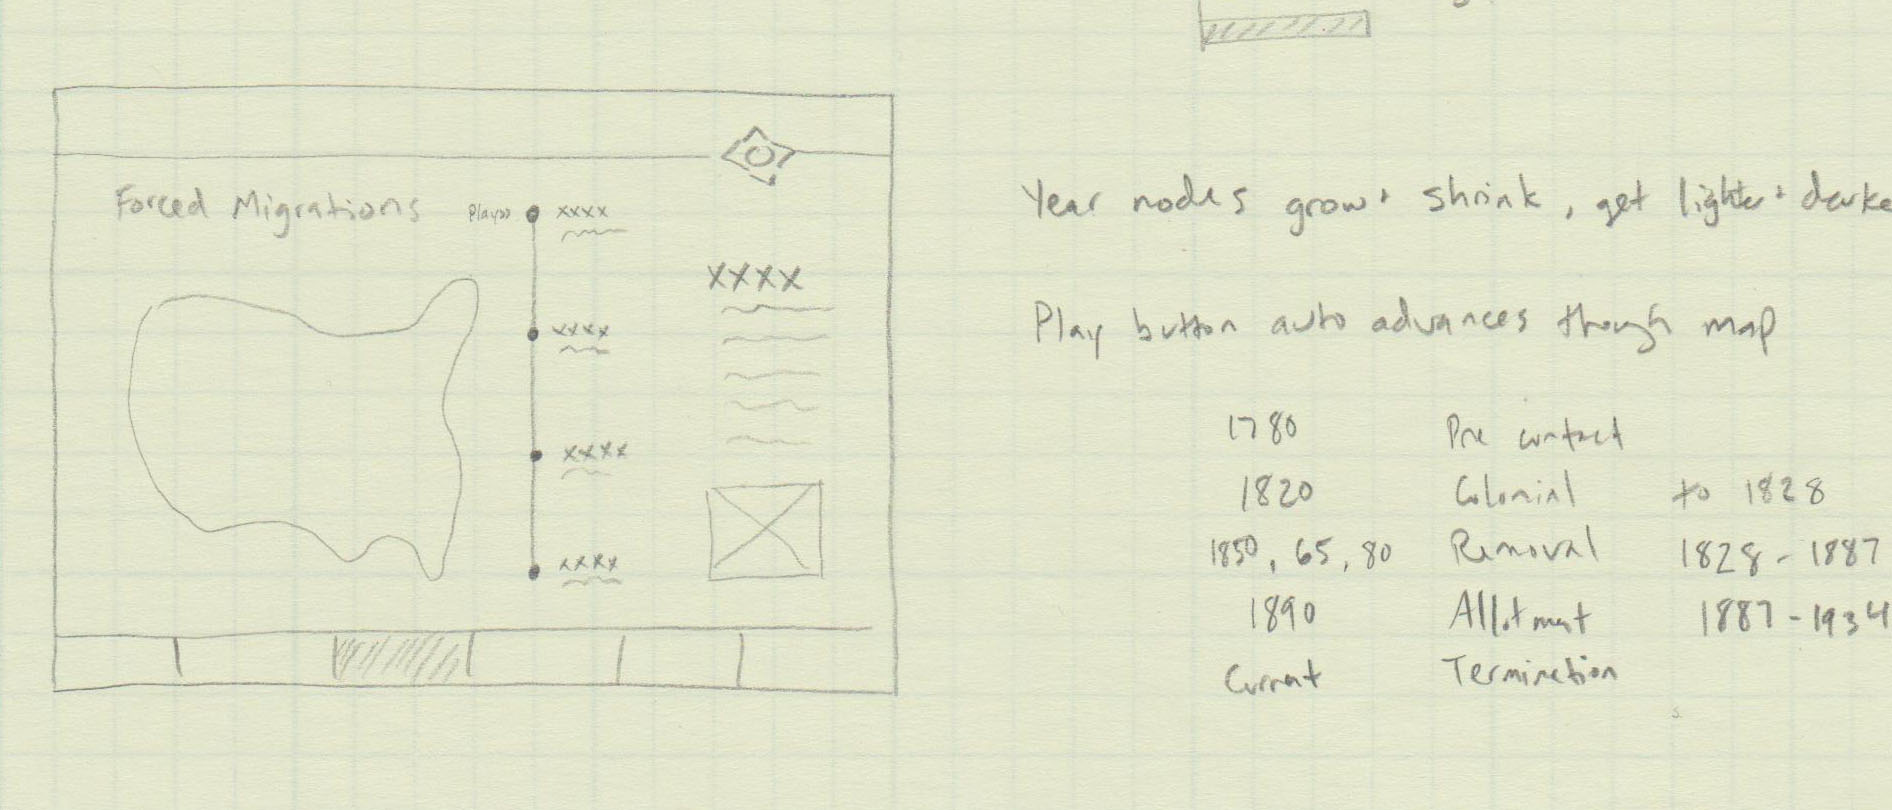 Forced Migrations
Play>>
xxxx
xxxx
xxxx
xxxx
XXXX
Year nodes grow + shrink, get lighter + darke
Play button auto advances though map
1780 Pre contact
1820 Colonial to 1828
1850, 65, 80 Removal 1828 - 1887
1890 Allotment 1887 - 1934
Current Termination